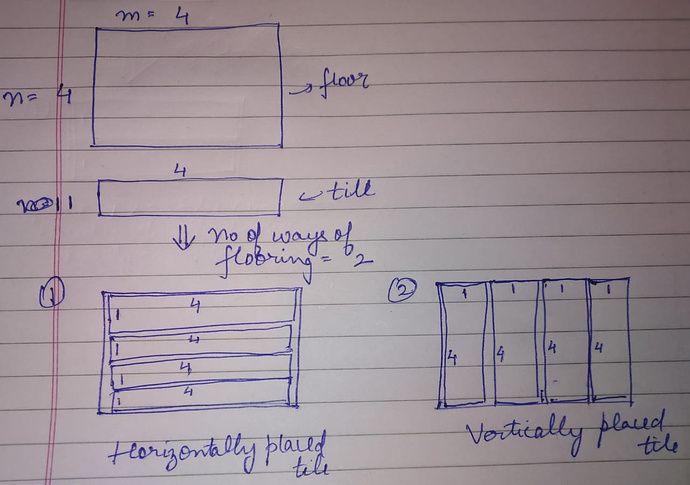 m = 4
n = 4
→ floor
4
1
← till
⇓ no of ways of
flooring = 2
①
4
1
4
1
4
1
4
1
②
1 1 1 1
4 4 4 4
Horizontally placed
tile
Vertically placed
tile